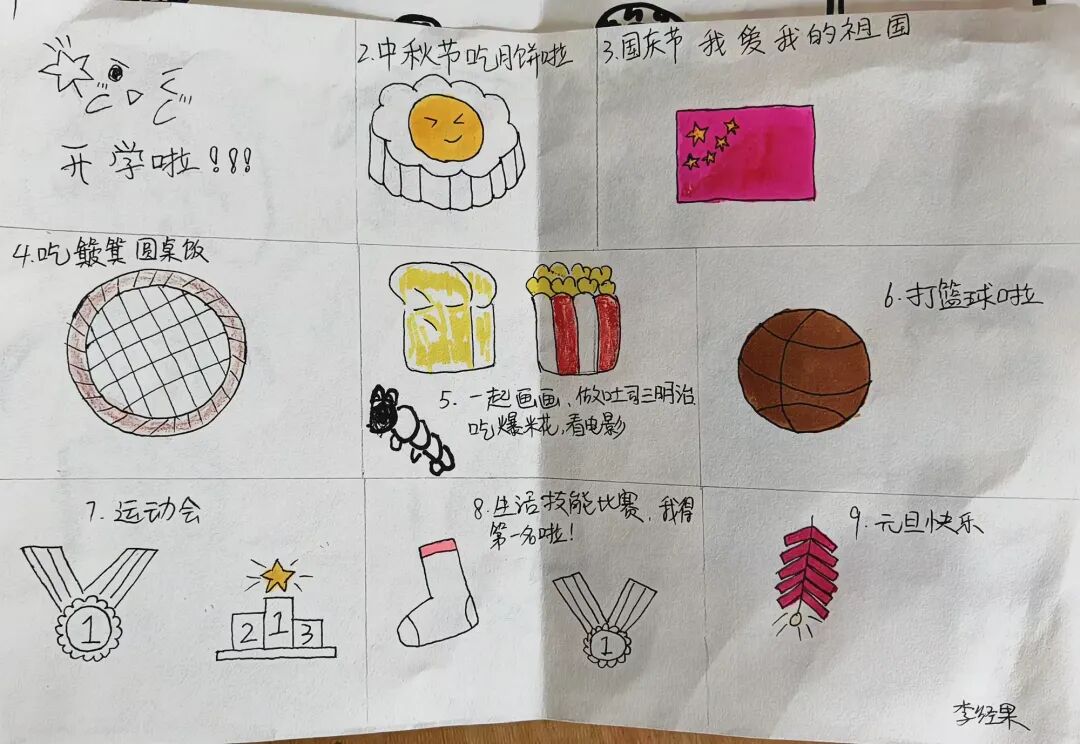 开学啦!!!
2.中秋节吃月饼啦
3.国庆节 我爱我的祖国
4.吃簸箕圆桌饭
5.一起画画、做吐司三明治
吃爆米花,看电影
6.打篮球啦
7.运动会
1
2 1 3
8.生活技能比赛,我得
第一名啦!
1
9.元旦快乐
李经果